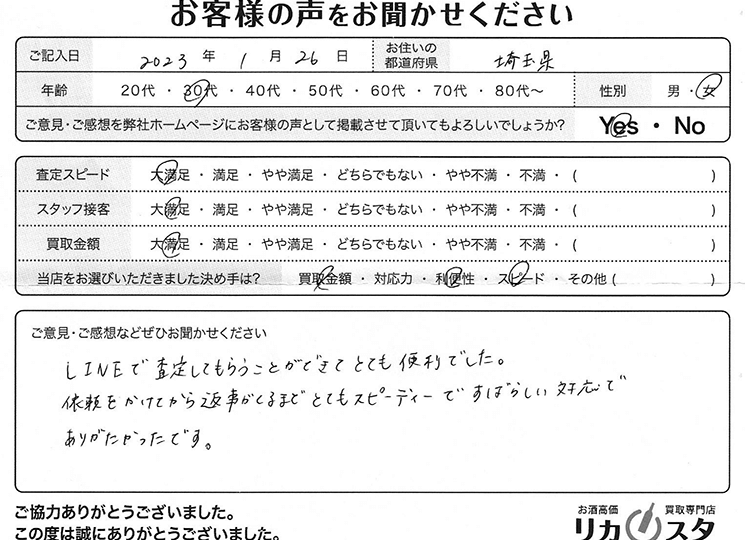 お客様の声をお聞かせください
ご記入日 2023 年 1 月 26 日 お住いの都道府県 埼玉県
年齢 20代 ・ 30代 ・ 40代 ・ 50代 ・ 60代 ・ 70代 ・ 80代～ 性別 男 ・ 女
ご意見・ご感想を弊社ホームページにお客様の声として掲載させて頂いてもよろしいでしょうか? Yes ・ No
査定スピード 大満足 ・ 満足 ・ やや満足 ・ どちらでもない ・ やや不満 ・ 不満 ・ ( )
スタッフ接客 大満足 ・ 満足 ・ やや満足 ・ どちらでもない ・ やや不満 ・ 不満 ・ ( )
買取金額 大満足 ・ 満足 ・ やや満足 ・ どちらでもない ・ やや不満 ・ 不満 ・ ( )
当店をお選びいただきました決め手は? 買取金額 ・ 対応力 ・ 利便性 ・ スピード ・ その他 ( )
ご意見・ご感想などぜひお聞かせください
LINEで査定してもらうことができてとても便利でした。
依頼をかけてから返事がくるまでとてもスピーディーですばらしい対応で
ありがたかったです。
ご協力ありがとうございました。
この度は誠にありがとうございました。
お酒高価 買取専門店
リカスタ